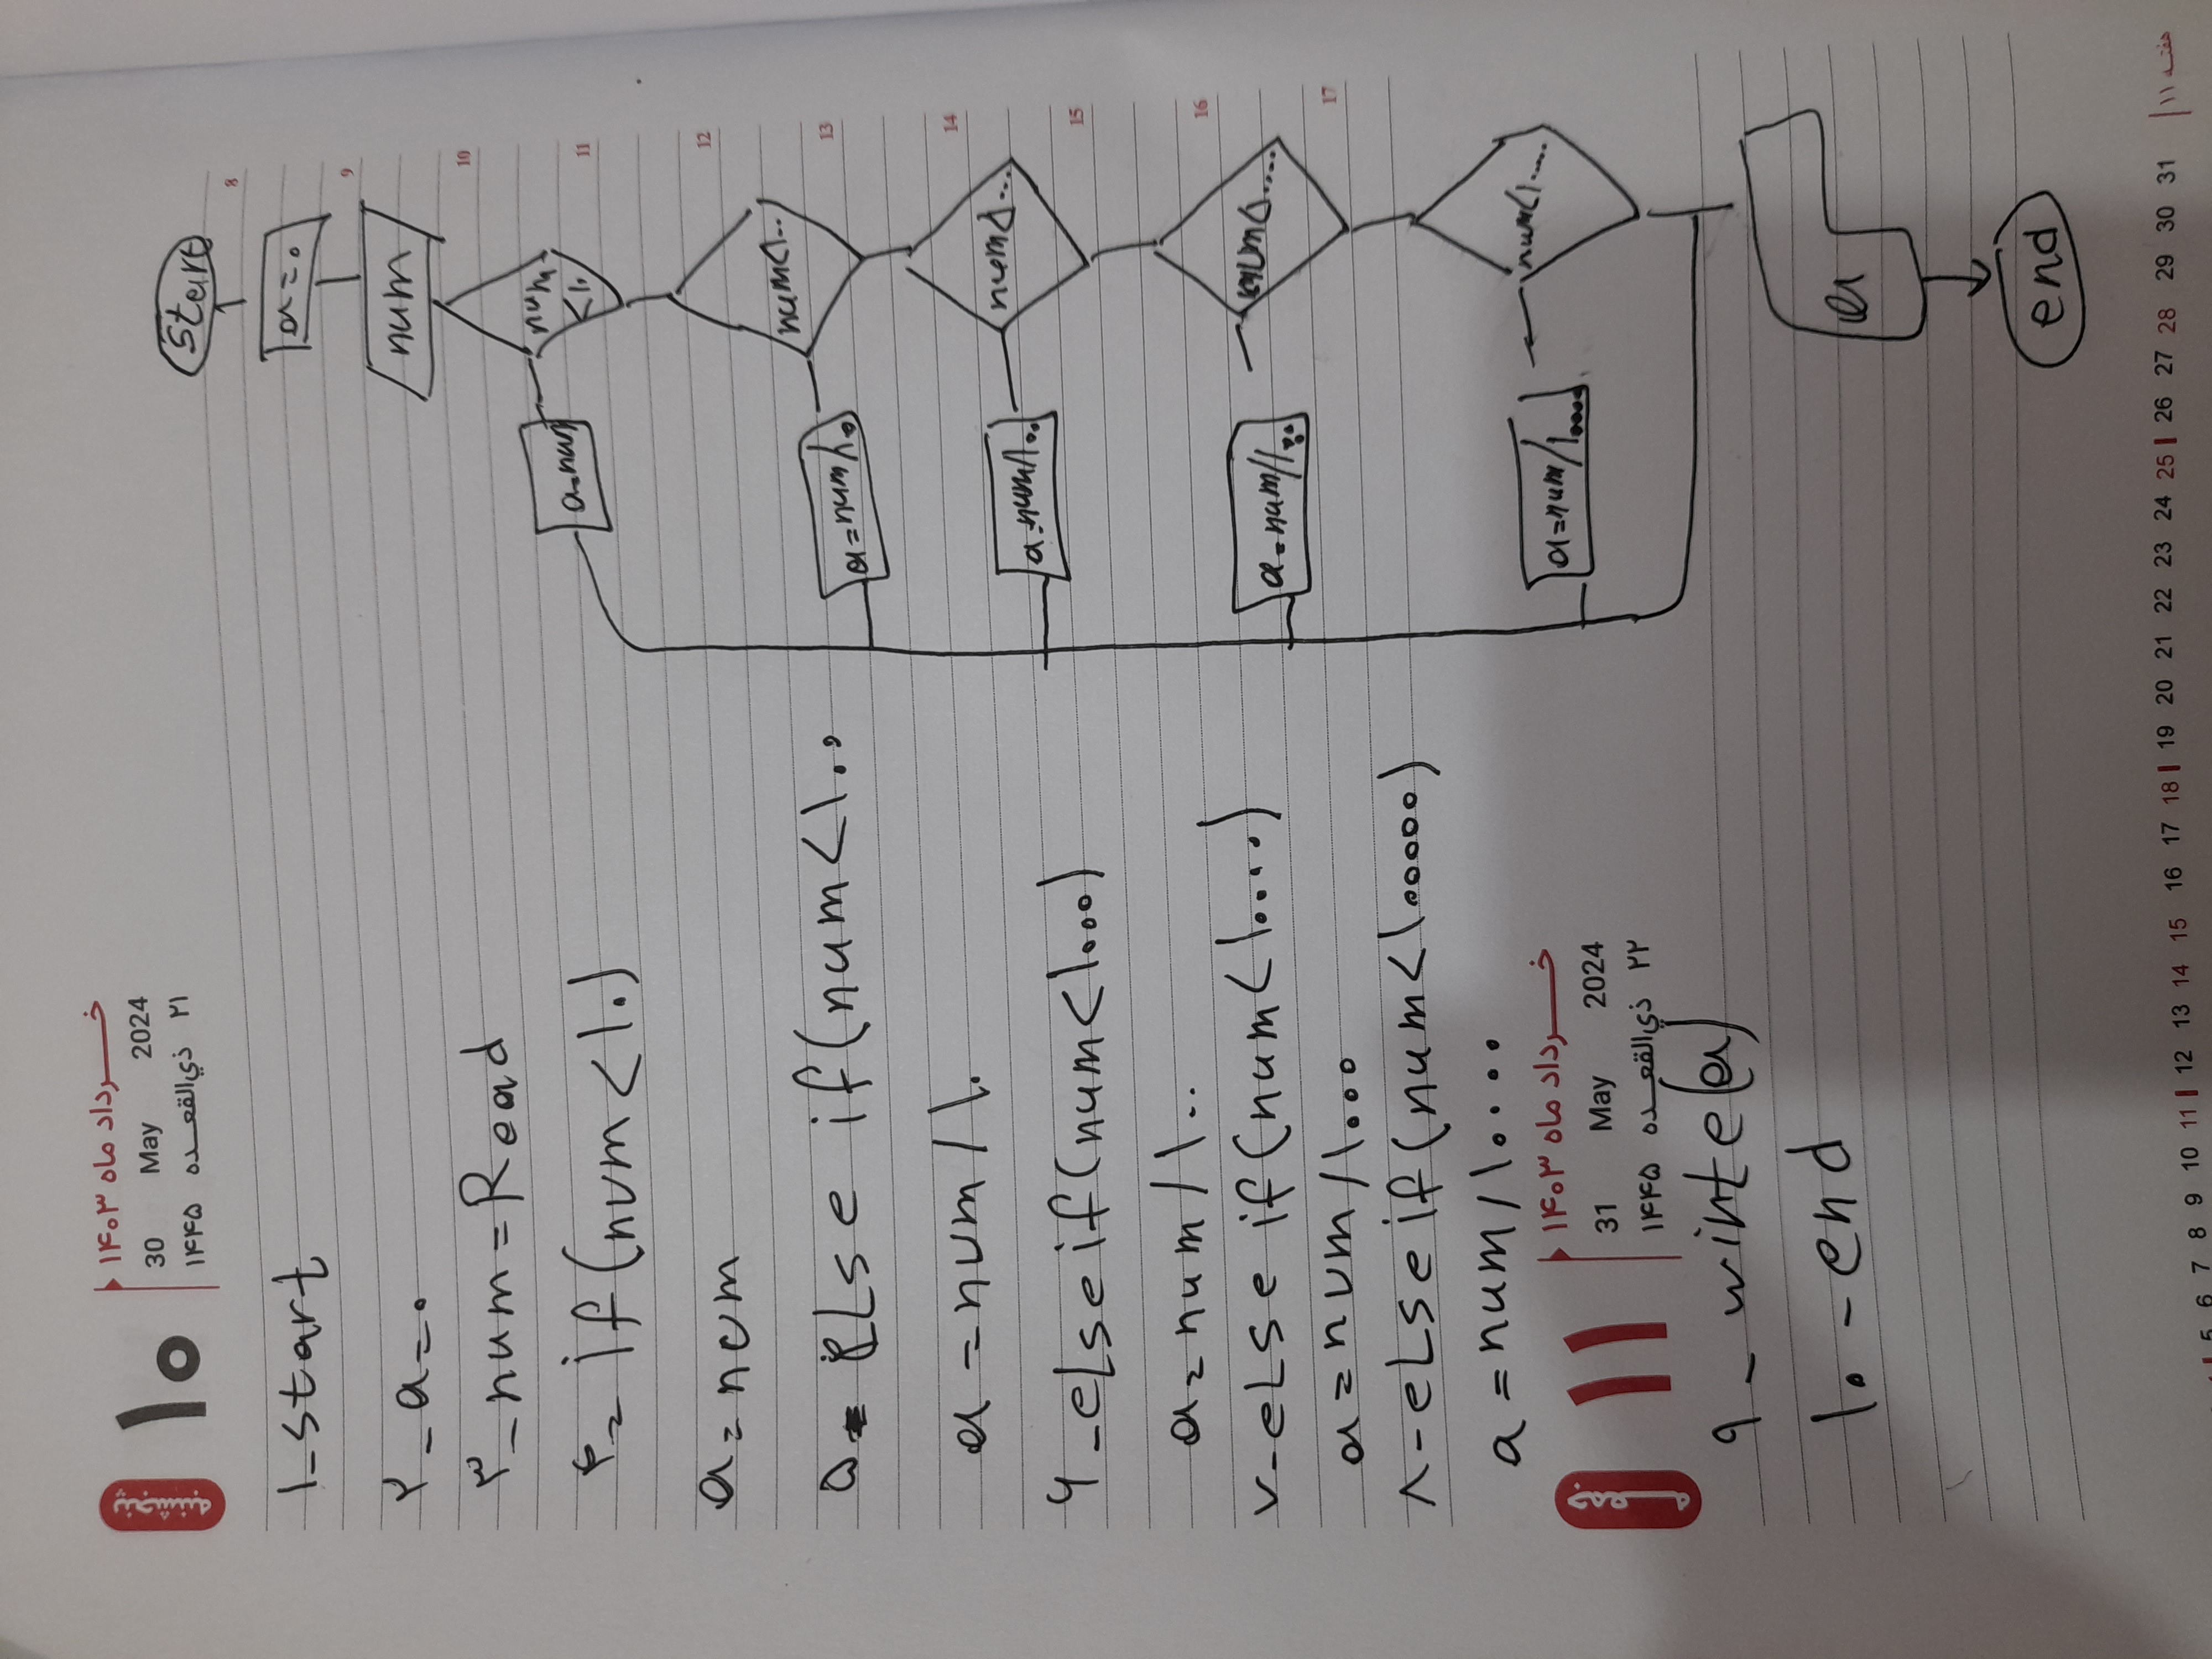 پنجشنبه
۱۰
خرداد ماه ۱۴۰۳
30 May 2024
۲۱ ذي‌القعده ۱۴۴۵
۱_start
۲_a=۰
۳_num=Read
۴= if(num<۱۰)
a=num
۵- eLse if(num<۱۰۰
a=num/۱۰
۶_eLse if(num<۱۰۰۰)
a=num/۱۰۰
۷-eLse if(num<۱۰۰۰۰)
a=num/۱۰۰۰
۸-eLse if(num<۱۰۰۰۰۰)
a=num/۱۰۰۰۰
جمعه
۱۱
خرداد ماه ۱۴۰۳
31 May 2024
۲۲ ذي‌القعده ۱۴۴۵
۹_winte(a)
۱۰-end
start
8
a=۰
9
num
10
num
<۱۰
a=num
11
12
num<۱۰۰
a=num/۱۰
13
14
num<۱۰۰۰
a=num/۱۰۰
15
16
num<۱۰۰۰۰
a=num/۱۰۰۰
17
num<۱۰۰۰۰۰
a=num/۱۰۰۰۰
a
end
5 6 7 8 9 10 11 12 13 14 15 16 17 18 19 20 21 22 23 24 25 26 27 28 29 30 31
هفته ۱۱